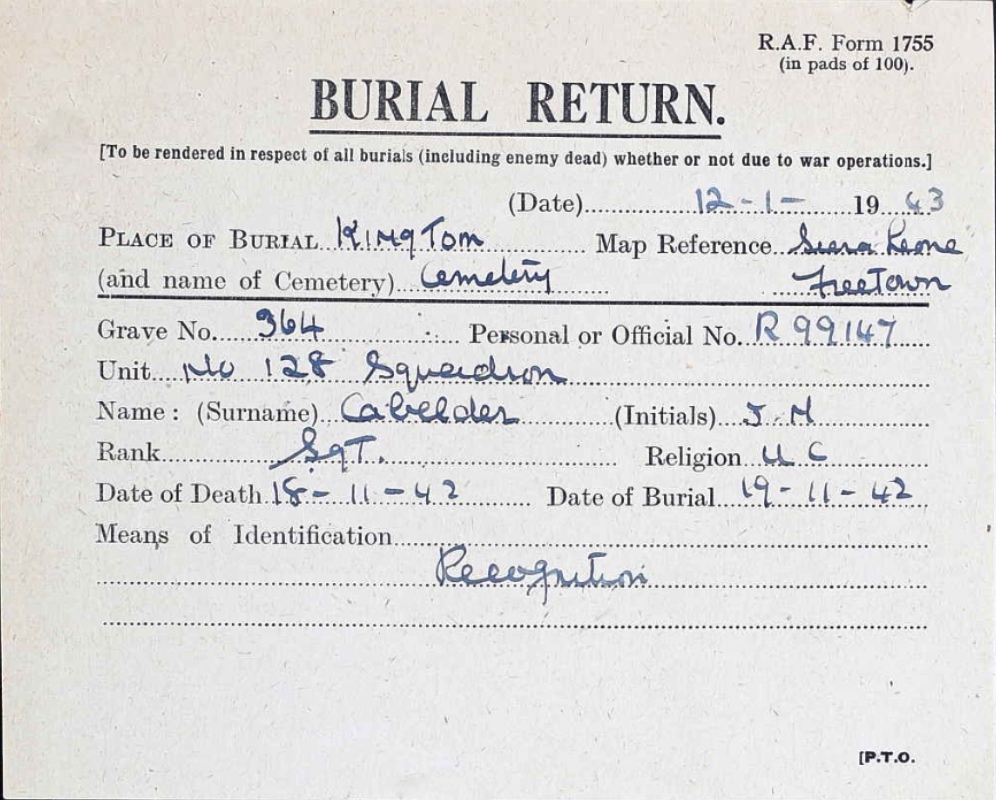 R.A.F. Form 1755
(in pads of 100).
BURIAL RETURN.
[To be rendered in respect of all burials (including enemy dead) whether or not due to war operations.]
(Date) 12-1- 19 43
PLACE OF BURIAL King Tom Map Reference Siera Leone
(and name of Cemetery) Cemetery Freetown
Grave No. 364 Personal or Official No. R 99147
Unit No 128 Squadron
Name: (Surname) (Initials) J. M
Rank Sgt. Religion U C
Date of Death 18-11-42 Date of Burial 19-11-42
Means of Identification
Recognition
[P.T.O.